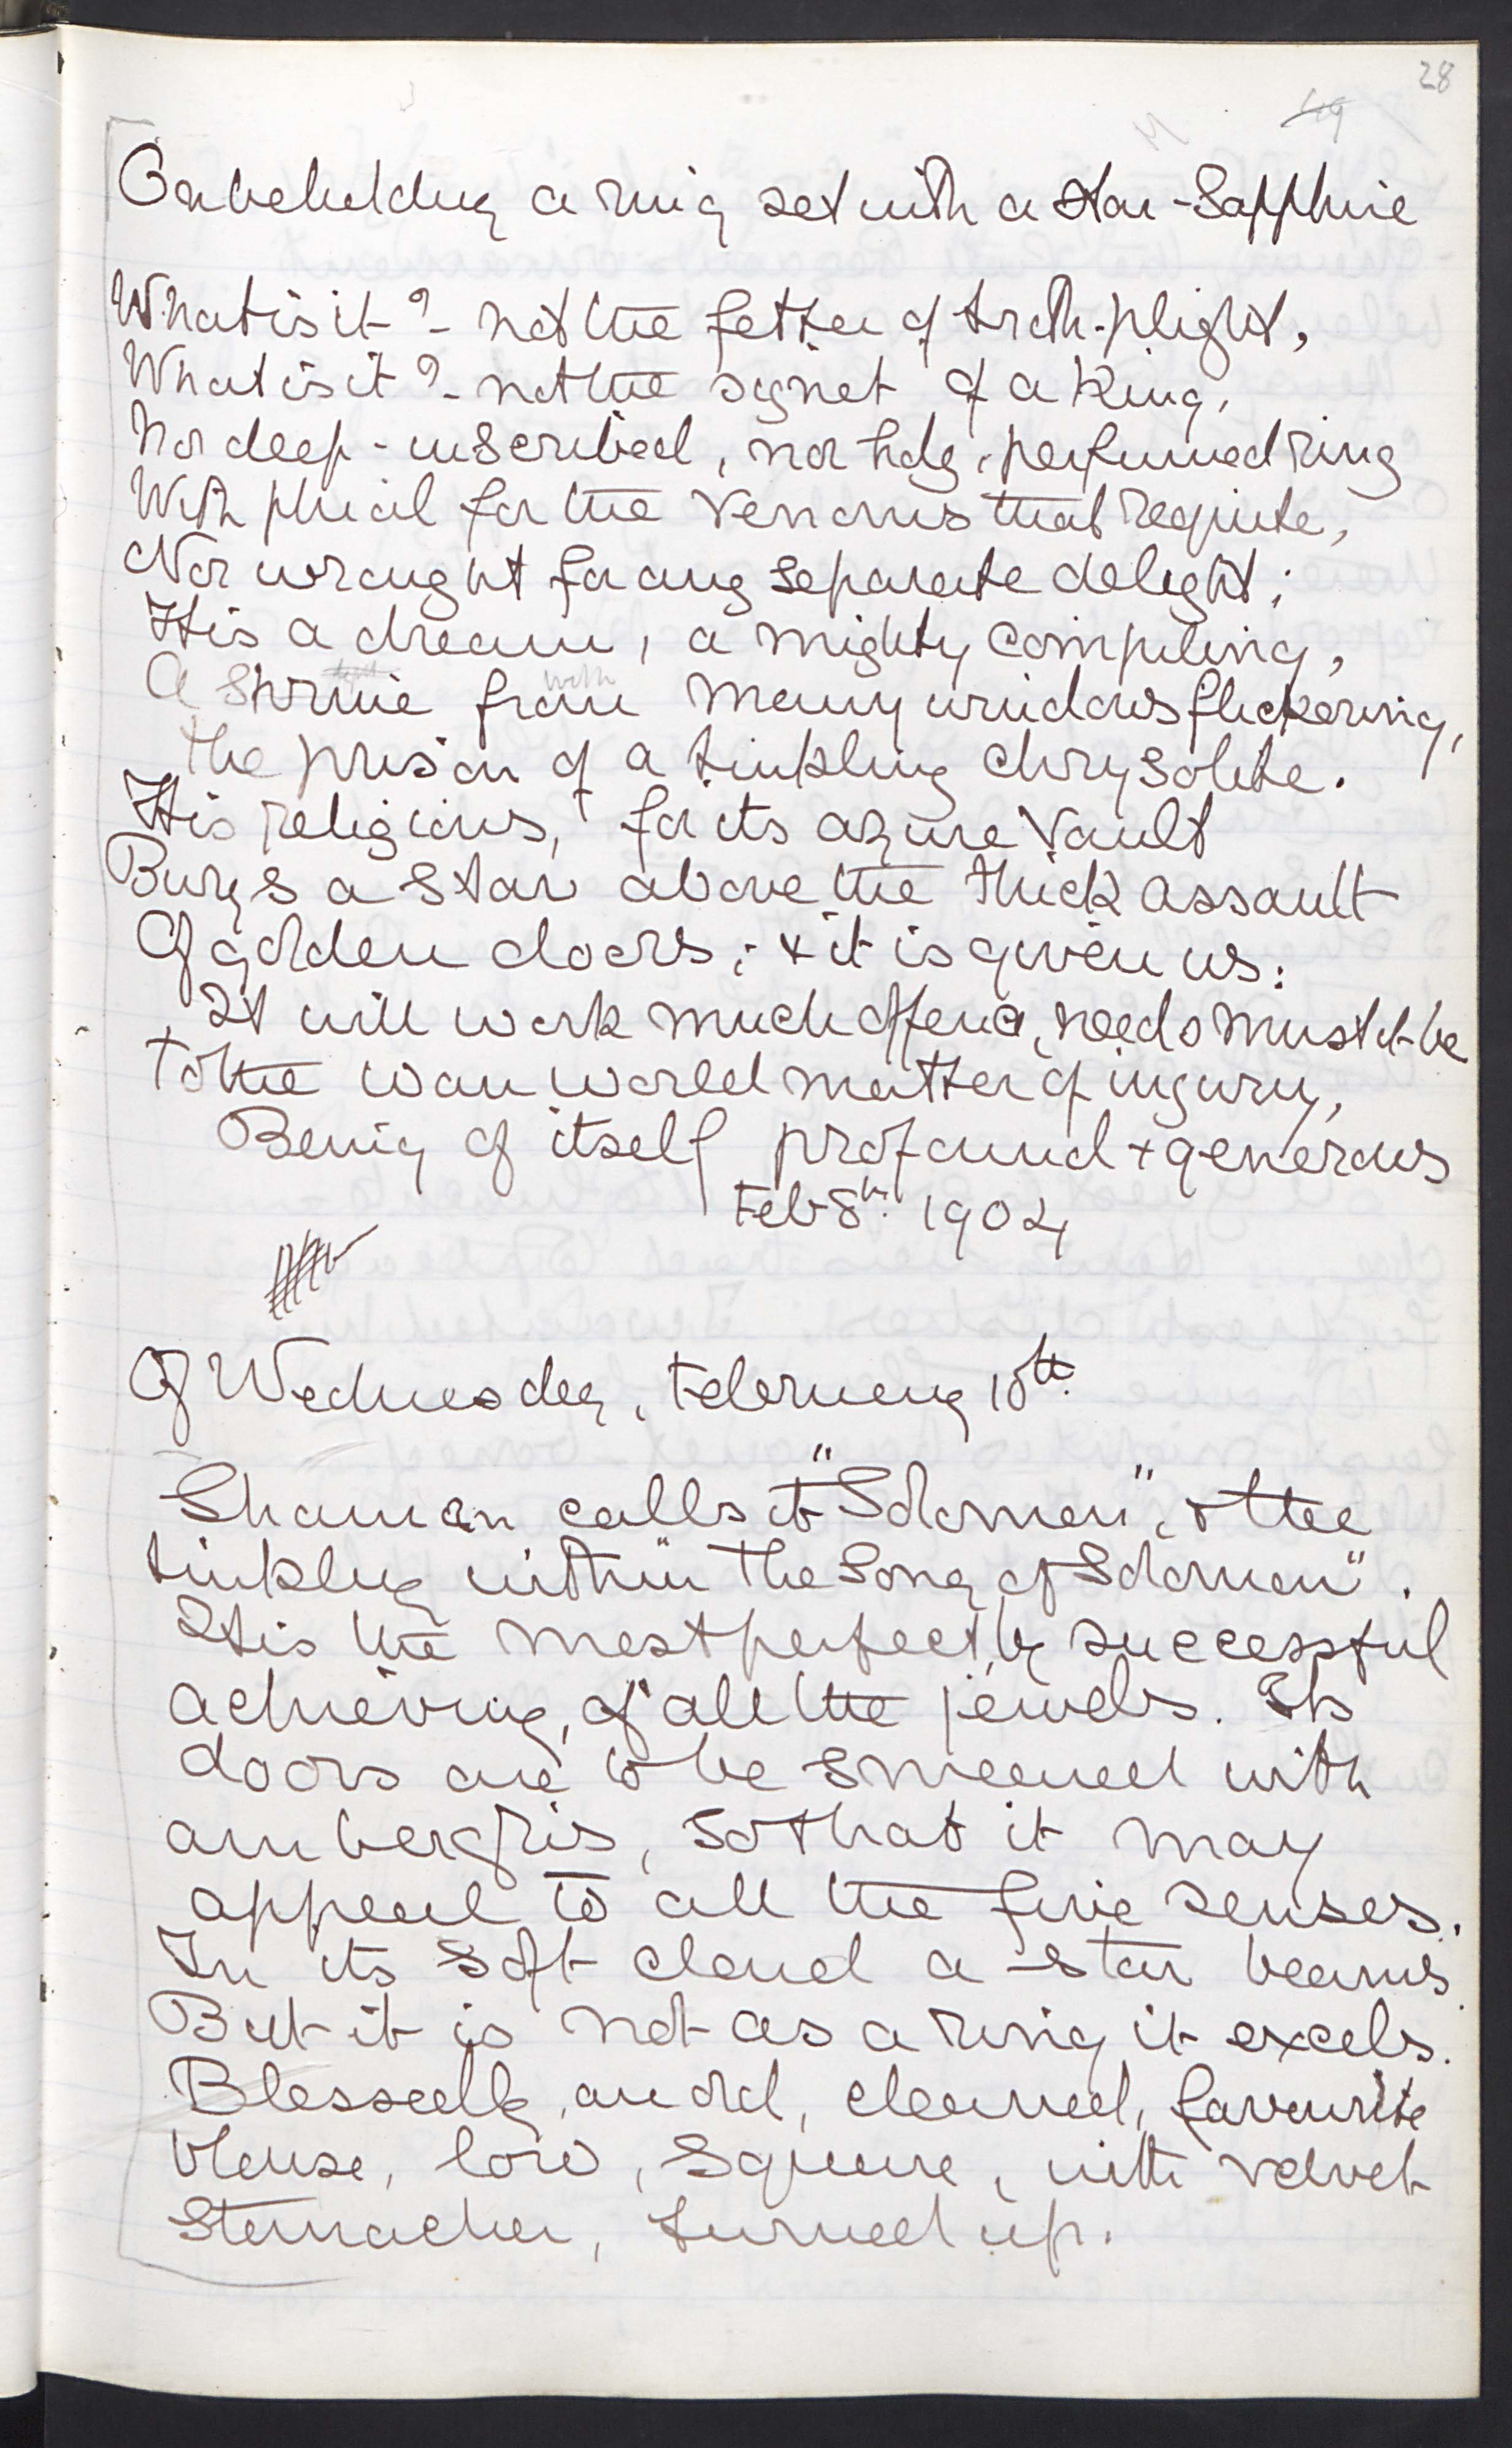 28
49
On beholding a ring set with a Star-Sapphire
What is it? - not the fetter of troth-plight,
What is it? - not the signet of a King,
Nor deep-inscribed, nor holy, perfumed ring
With phial for the venoms that requite,
Nor wrought for any separate delight:
It is a dream, a mighty compiling,
with
A shrine from many windows flickering,
the prison of a tinkling chrysolite.
It is religious, for its azure vault
Burys a star above the thick assault
Of golden doors; & it is given us:
It will work much offence, needs must it be
To the wan world matter of injury,
Being of itself profound & generous
Feb 8th. 1904
Of Wednesday, February 10th.
Shannon calls it "Solomon", & the
tinkling within "The Song of Solomon".
It is the most perfectly successful
achieving, of all the jewels. Its
doors are to be smeared with
ambergris, so that it may
appeal to all the five senses.
In its soft cloud a star beams.
But it is not as a ring it excels.
Blessedly, an old, cleaned, favourite
blouse, low, square, with velvet
stomacher, turned up.